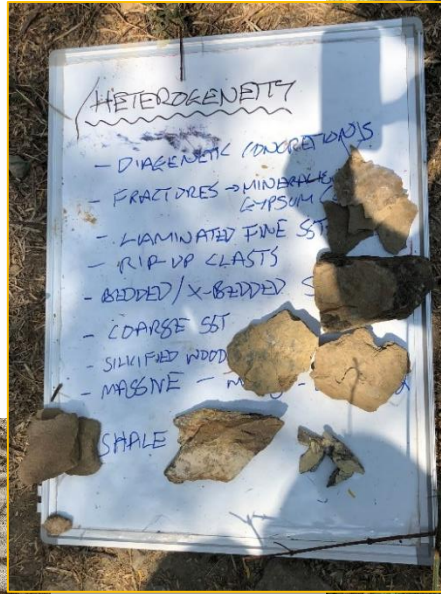 HETEROGENEITY
- DIAGENETIC CONCRETIONS
- FRACTURES → 
GYPSUM
- LAMINATED FINE SST
- RIP-UP CLASTS
- BEDDED/X-BEDDED
- COARSE SST
- SILICIFIED WOOD
- MASSIVE -
SHALE